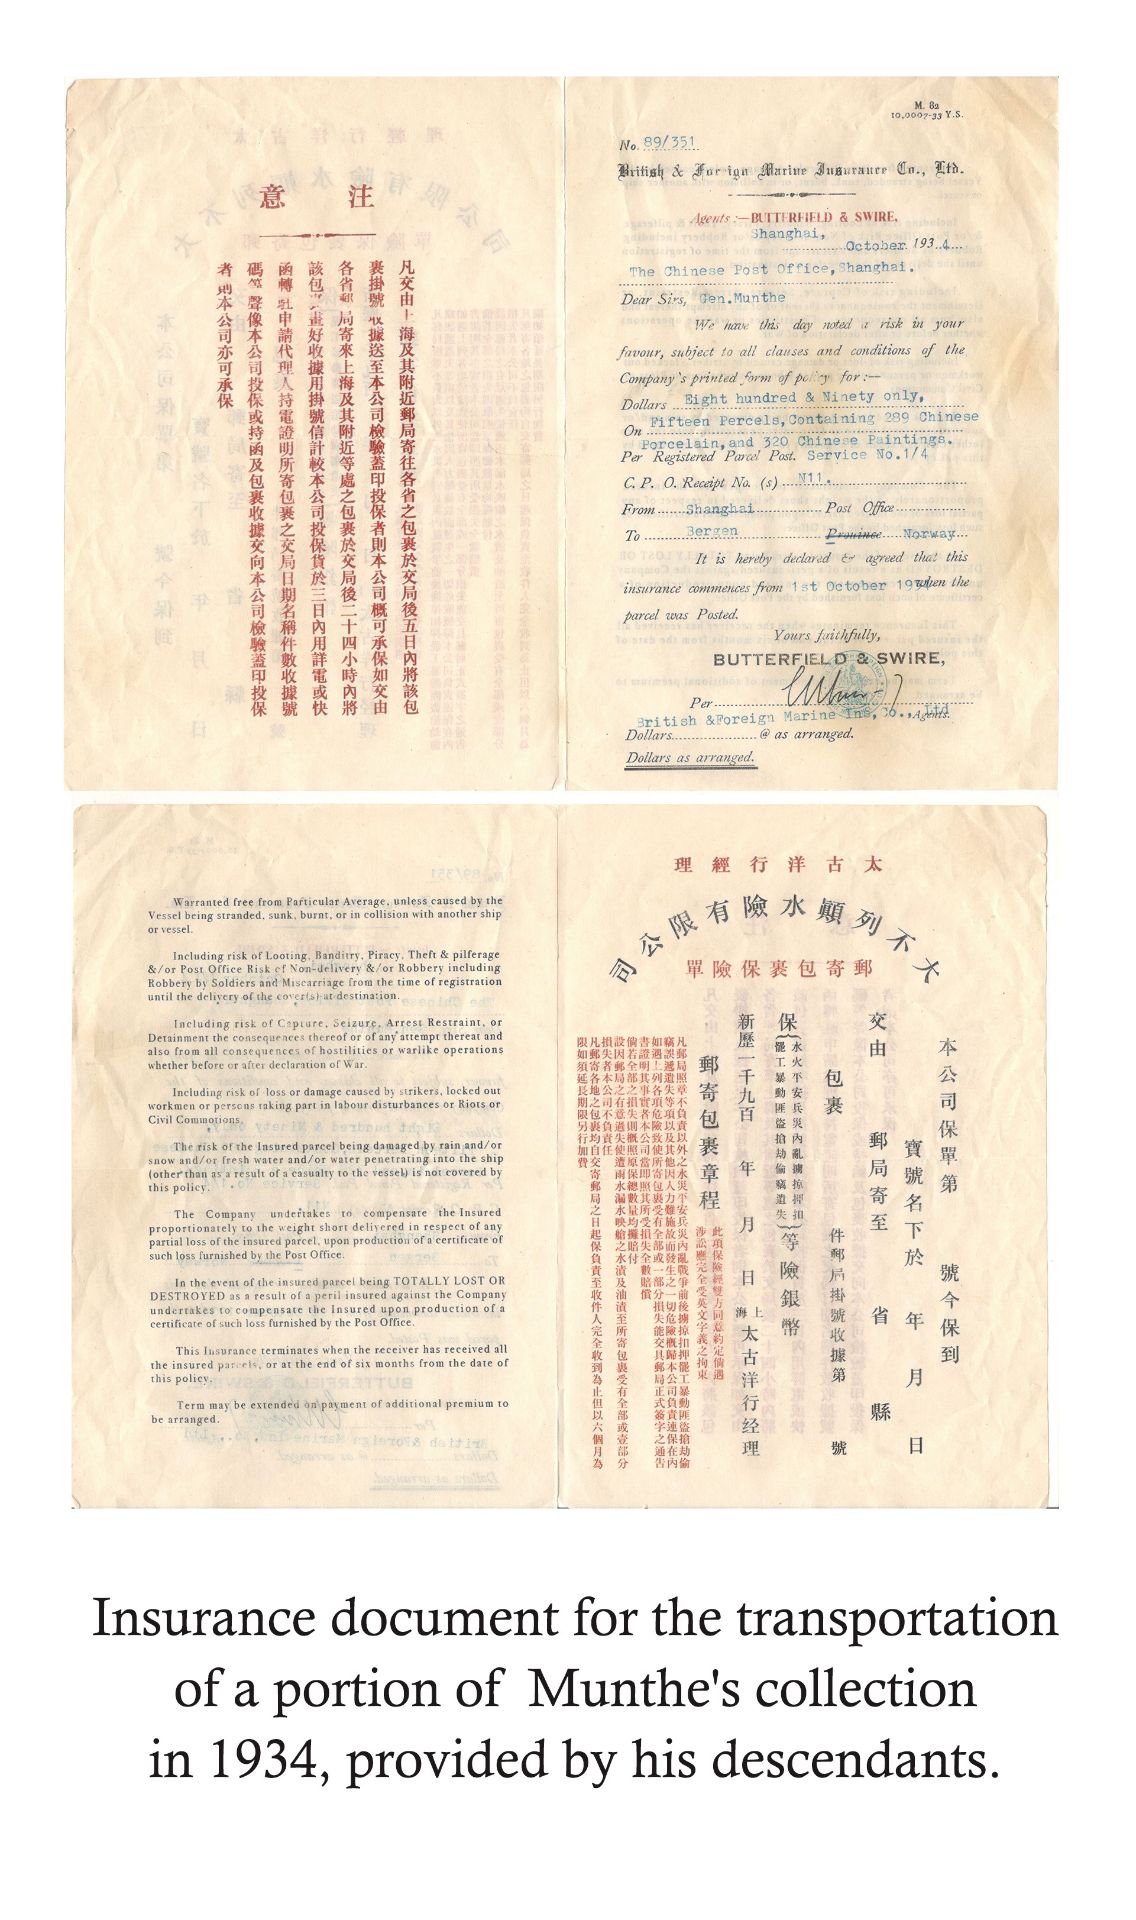 意 注
凡交由上海及其附近郵局寄往各省之包裹於交局後五日內將該包
裹掛號收據送至本公司檢驗蓋印投保者則本公司概可承保如交由
各省郵局寄來上海及其附近等處之包裹於交局後二十四小時內將
該包 畫好收據用掛號信計較本公司投保貨於三日內用詳電或快
函轉 申請代理人持電證明所寄包裹之交局日期名稱件數收據號
碼等聲像本公司投保或持函及包裹收據交向本公司檢驗蓋印投保
者則本公司亦可承保
M. 82
10,0007-33 Y.S.
No. 89/351.
British & Foreign Marine Insurance Co., Ltd.
Agents:—BUTTERFIELD & SWIRE,
Shanghai,
October 1934
The Chinese Post Office,Shanghai.
Dear Sirs, Gen.Munthe
We have this day noted a risk in your
favour, subject to all clauses and conditions of the
Company's printed form of policy for:—
Dollars Eight hundred & Ninety only,
On Fifteen Percels,Containing 289 Chinese
Porcelain,and 320 Chinese Paintings.
Per Registered Parcel Post. Service No.1/4
C. P. O. Receipt No. (s) N11.
From Shanghai Post Office
To Bergen Province Norway
It is hereby declared & agreed that this
insurance commences from 1st October 1934 when the
parcel was Posted.
Yours faithfully,
BUTTERFIELD & SWIRE,
Per
British &Foreign Marine Ins,Co.,Ltd Agents.
Dollars @ as arranged.
Dollars as arranged.
Warranted free from Particular Average, unless caused by the
Vessel being stranded, sunk, burnt, or in collision with another ship
or vessel.
Including risk of Looting, Banditry, Piracy, Theft & pilferage
&/or Post Office Risk of Non-delivery &/or Robbery including
Robbery by Soldiers and Miscarriage from the time of registration
until the delivery of the cover(s) at destination.
Including risk of Capture, Seizure, Arrest Restraint, or
Detainment the consequences thereof or of any attempt thereat and
also from all consequences of hostilities or warlike operations
whether before or after declaration of War.
Including risk of loss or damage caused by strikers, locked out
workmen or persons taking part in labour disturbances or Riots or
Civil Commotions.
The risk of the Insured parcel being damaged by rain and/or
snow and/or fresh water and/or water penetrating into the ship
(other than as a result of a casualty to the vessel) is not covered by
this policy.
The Company undertakes to compensate the Insured
proportionately to the weight short delivered in respect of any
partial loss of the insured parcel, upon production of a certificate of
such loss furnished by the Post Office.
In the event of the insured parcel being TOTALLY LOST OR
DESTROYED as a result of a peril insured against the Company
undertakes to compensate the Insured upon production of a
certificate of such loss furnished by the Post Office.
This Insurance terminates when the receiver has received all
the insured parcels, or at the end of six months from the date of
this policy.
Term may be extended on payment of additional premium to
be arranged.
理經行洋古太
司公限有險水顚列不大
單險保裹包寄郵
本公司保單第 號今保到
寶號名下於 年 月 日
交由 郵局寄至 省 縣
包裹 件郵局掛號收據第 號
保(水火平安兵災內亂擄掠押扣
罷工暴動匪盜搶劫偷竊遺失)等險銀幣
新歷一千九百 年 月 日 上海 太古洋行经理
郵寄包裹章程 此項保險經雙方同意約定倘遇
涉訟應完全受英文字義之拘束
凡郵局照章不負責以外之水災平安兵災內亂戰爭前後擄掠扣押罷工暴動匪盜搶劫偷
竊誤遞遺失等項以及其他因人力難施故而發生之一切危險概歸本公司負責連保在內
如遇上列各項危險致使所寄包裹受有全部或一部分損失能交具郵局正式簽字之通告
書證明其事實者本公司當即照其所受損失全數賠償
倘若全部之損失則概照原保總數量均攤賠付
設因郵局之有意過失使遭雨水漏水映艙之水漬及油漬至所寄包裹受有全部或壹部分
損失者本公司不負責任
凡郵寄各地之包裹均自交寄郵局之日起保負責至收件人完全收到為止但以六個月為
限如須延長期限另行加費
Insurance document for the transportation
of a portion of Munthe's collection
in 1934, provided by his descendants.